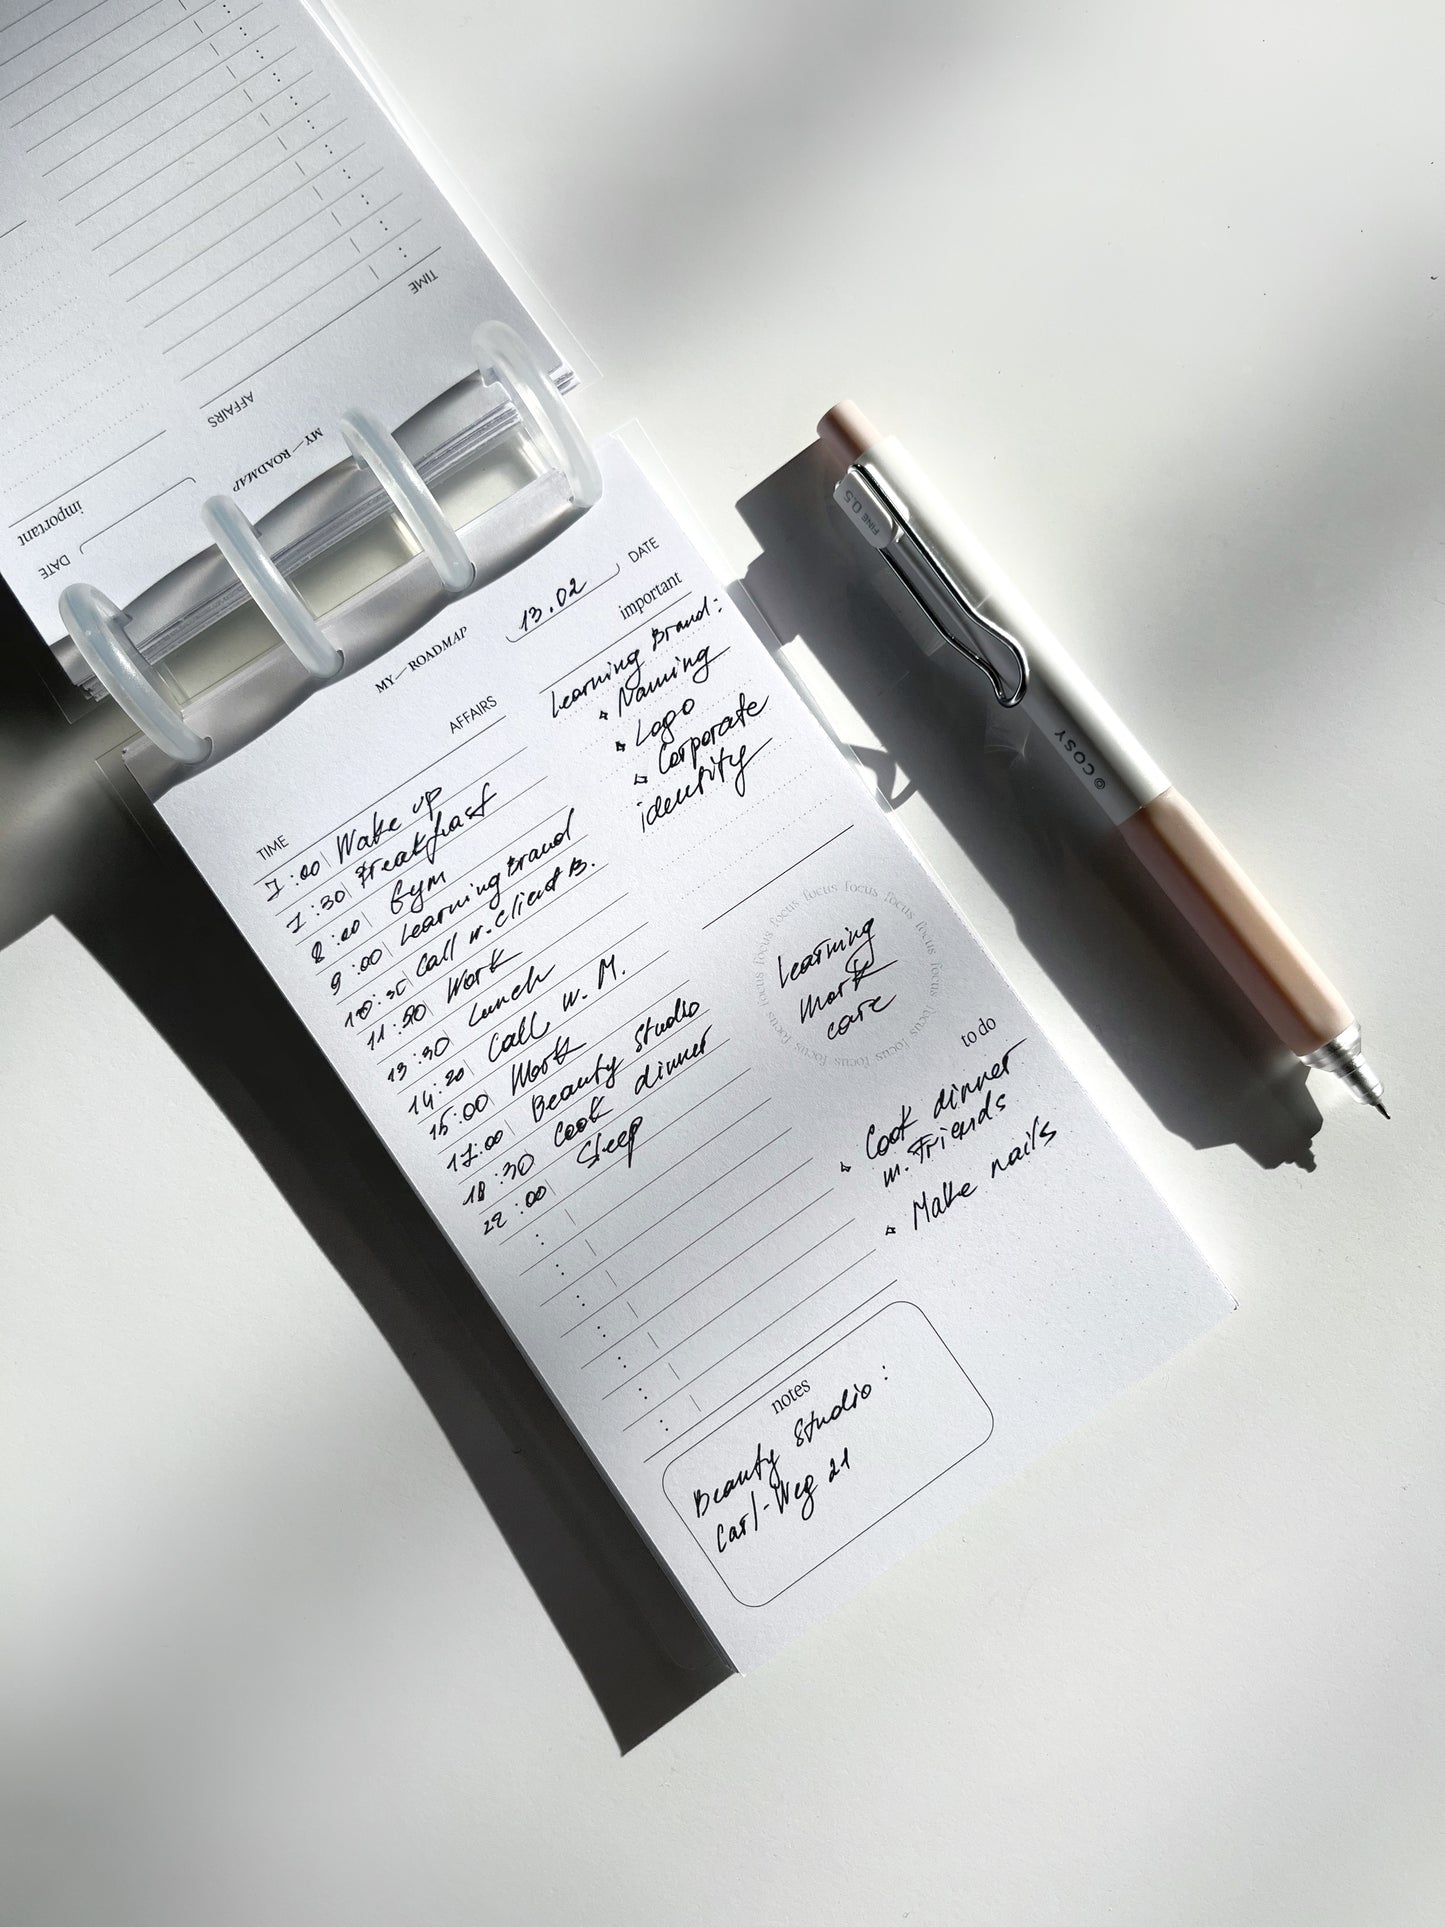 TIME
AFFAIRS
MY—ROADMAP
important
DATE
MY—ROADMAP
13.02
DATE
TIME
AFFAIRS
7:00 Wake up
7:30 Breakfast
8:00 Gym
9:00 Learning Brand
10:30 Call w. Client B.
11:30 Work
13:30 Lunch
14:20 Call w. M.
15:00 Work
17:00 Beauty Studio
18:30 Cook dinner
22:00 Sleep
important
Learning Brand:
Naming
Logo
Corporate
identity
focus focus focus focus focus focus focus focus focus focus focus focus
Learning
Work
care
to do
Cook dinner
w. Friends
Make nails
notes
Beauty Studio:
Carl-Weg 21
FINE 0.5
©COSY